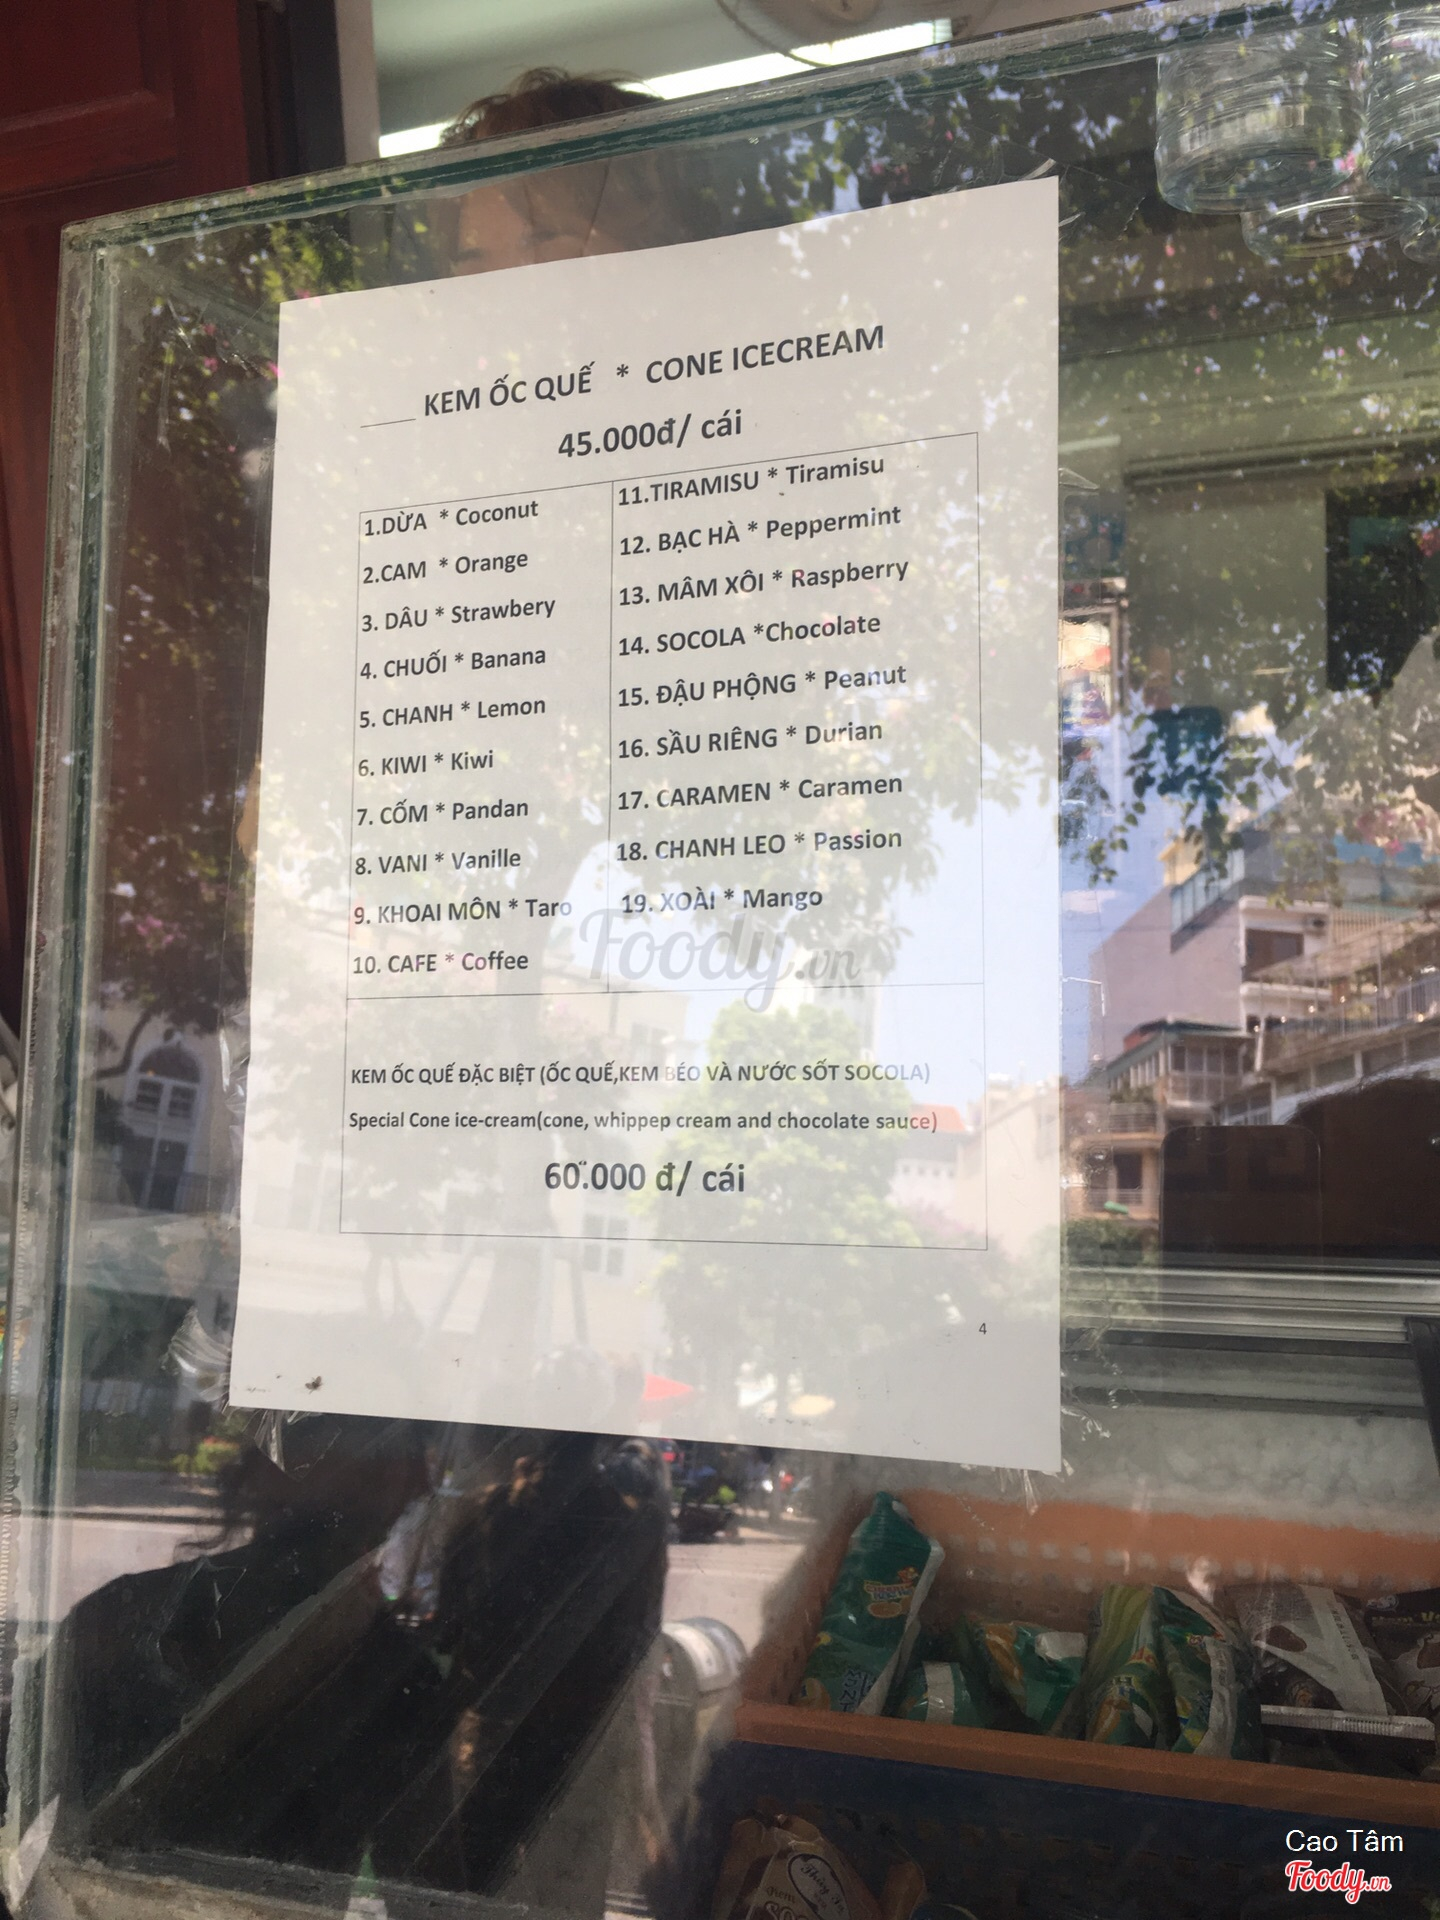 KEM ỐC QUẾ * CONE ICECREAM
45.000đ/ cái
1.DỪA * Coconut
2.CAM * Orange
3. DÂU * Strawbery
4. CHUỐI * Banana
5. CHANH * Lemon
6. KIWI * Kiwi
7. CỐM * Pandan
8. VANI * Vanille
9. KHOAI MÔN * Taro
10. CAFE * Coffee
11.TIRAMISU * Tiramisu
12. BẠC HÀ * Peppermint
13. MÂM XÔI * Raspberry
14. SOCOLA *Chocolate
15. ĐẬU PHỘNG * Peanut
16. SẦU RIÊNG * Durian
17. CARAMEN * Caramen
18. CHANH LEO * Passion
19. XOÀI * Mango
Foody.vn
KEM ỐC QUẾ ĐẶC BIỆT (ỐC QUẾ,KEM BÉO VÀ NƯỚC SỐT SOCOLA)
Special Cone ice-cream(cone, whippep cream and chocolate sauce)
60.000 đ/ cái
4
Cao Tâm
Foody.vn